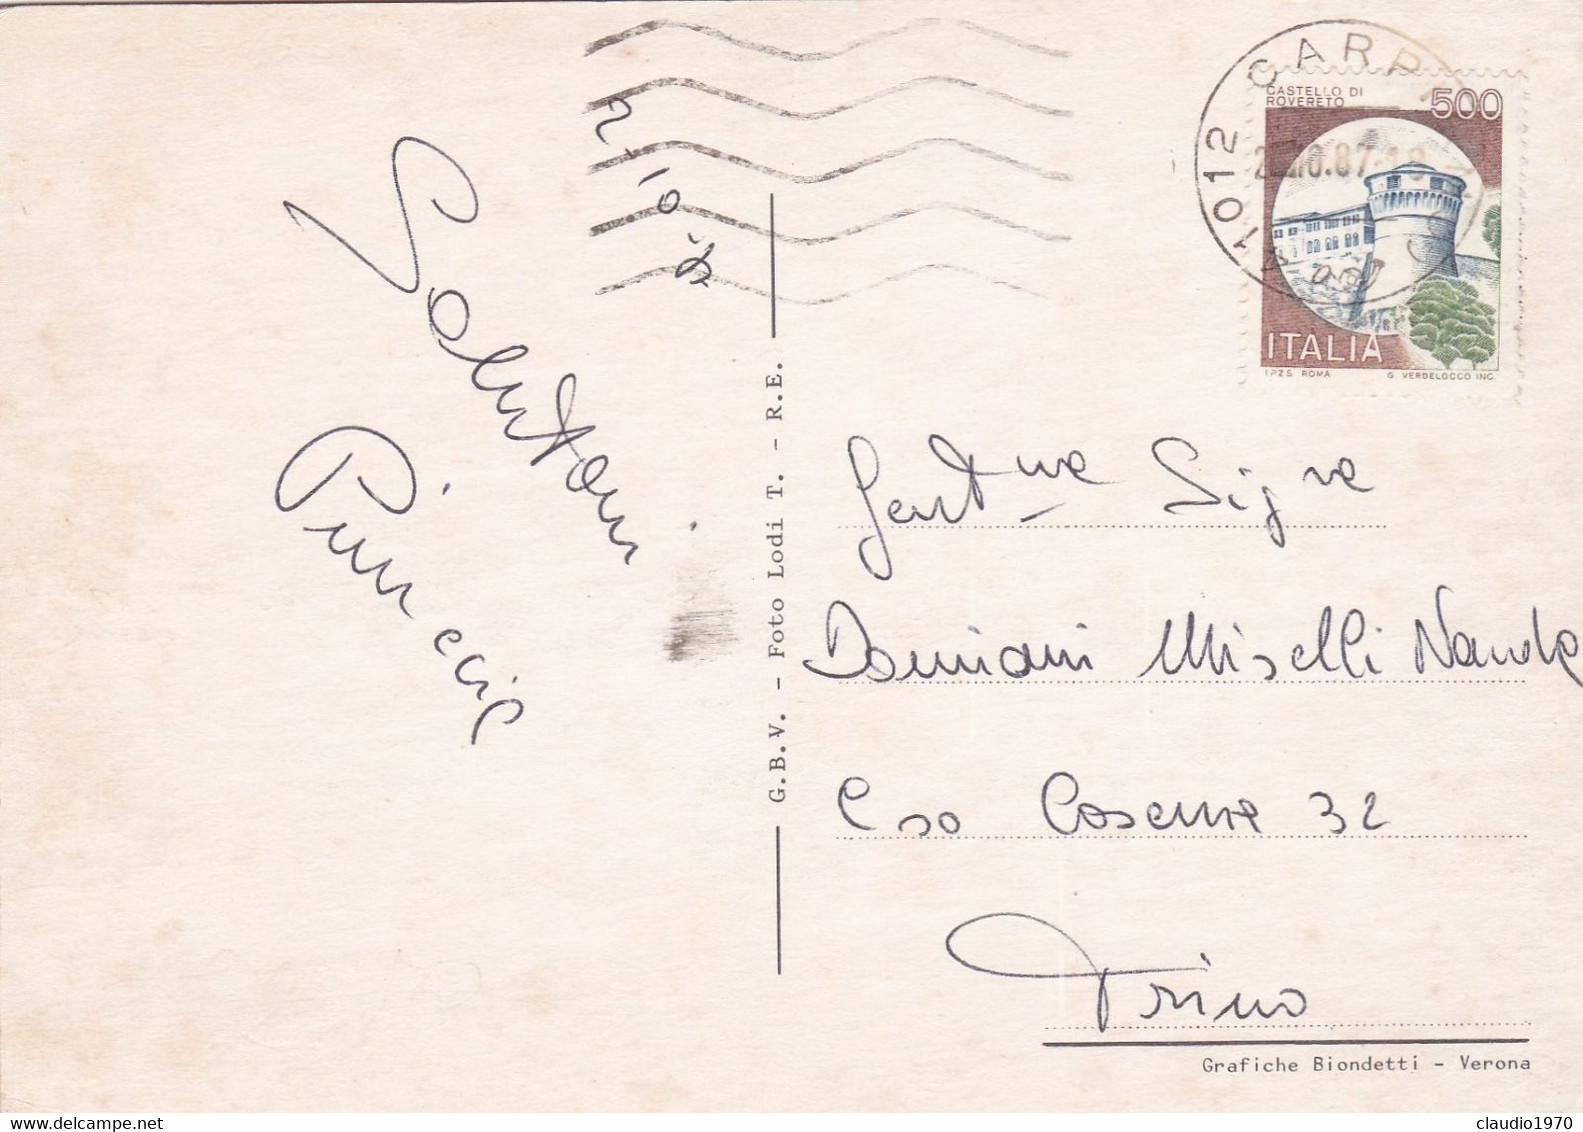 2-10-87
Saluton
G.B.V. - Foto Lodi T. - R.E.
41012 CARPI
2.10.87-18
CASTELLO DI
ROVERETO
500
ITALIA
I.P.Z.S. ROMA
G. VERDELOCCO INC.
Gent ma Sig ra
Damiani Miselli Nanda
Cso Caserme 32
Trino
Grafiche Biondetti - Verona
www.delcampe.net
claudio1970